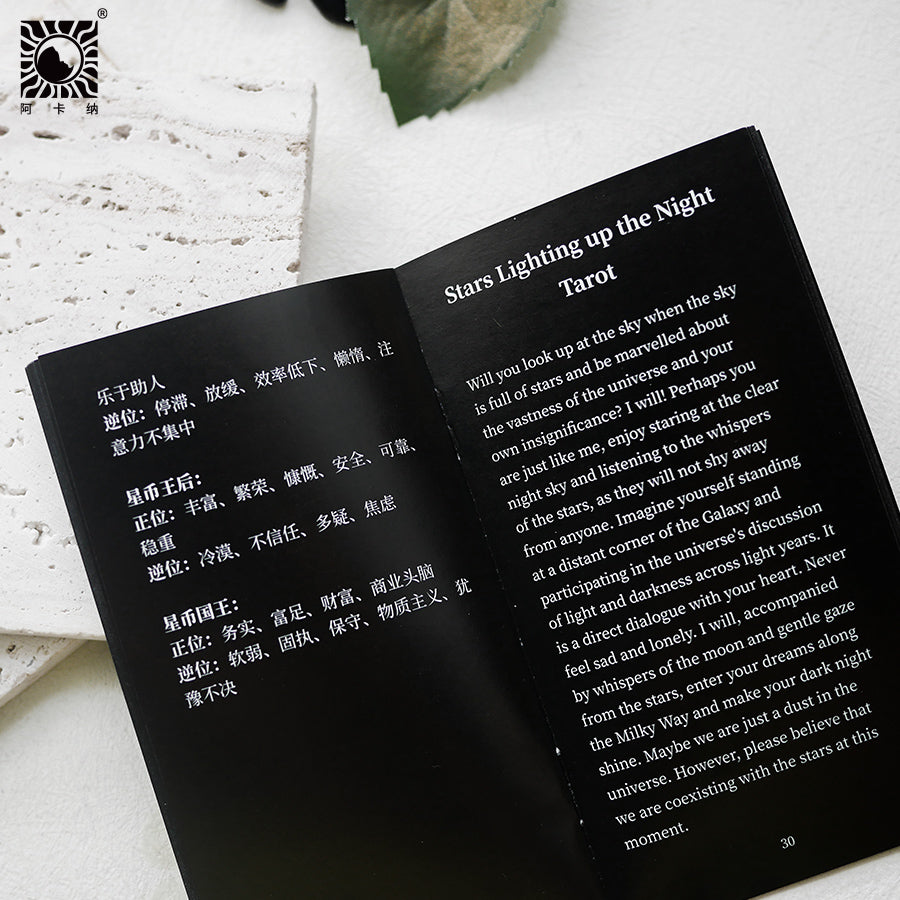 ®
阿卡纳
乐于助人
逆位：停滞、放缓、效率低下、懒惰、注
意力不集中
星币王后：
正位：丰富、繁荣、慷慨、安全、可靠、
稳重
逆位：冷漠、不信任、多疑、焦虑
星币国王：
正位：务实、富足、财富、商业头脑
逆位：软弱、固执、保守、物质主义、犹
豫不决
Stars Lighting up the Night
Tarot
Will you look up at the sky when the sky
is full of stars and be marvelled about
the vastness of the universe and your
own insignificance? I will! Perhaps you
are just like me, enjoy staring at the clear
night sky and listening to the whispers
of the stars, as they will not shy away
from anyone. Imagine yourself standing
at a distant corner of the Galaxy and
participating in the universe's discussion
of light and darkness across light years. It
is a direct dialogue with your heart. Never
feel sad and lonely. I will, accompanied
by whispers of the moon and gentle gaze
from the stars, enter your dreams along
the Milky Way and make your dark night
shine. Maybe we are just a dust in the
universe. However, please believe that
we are coexisting with the stars at this
moment.
30